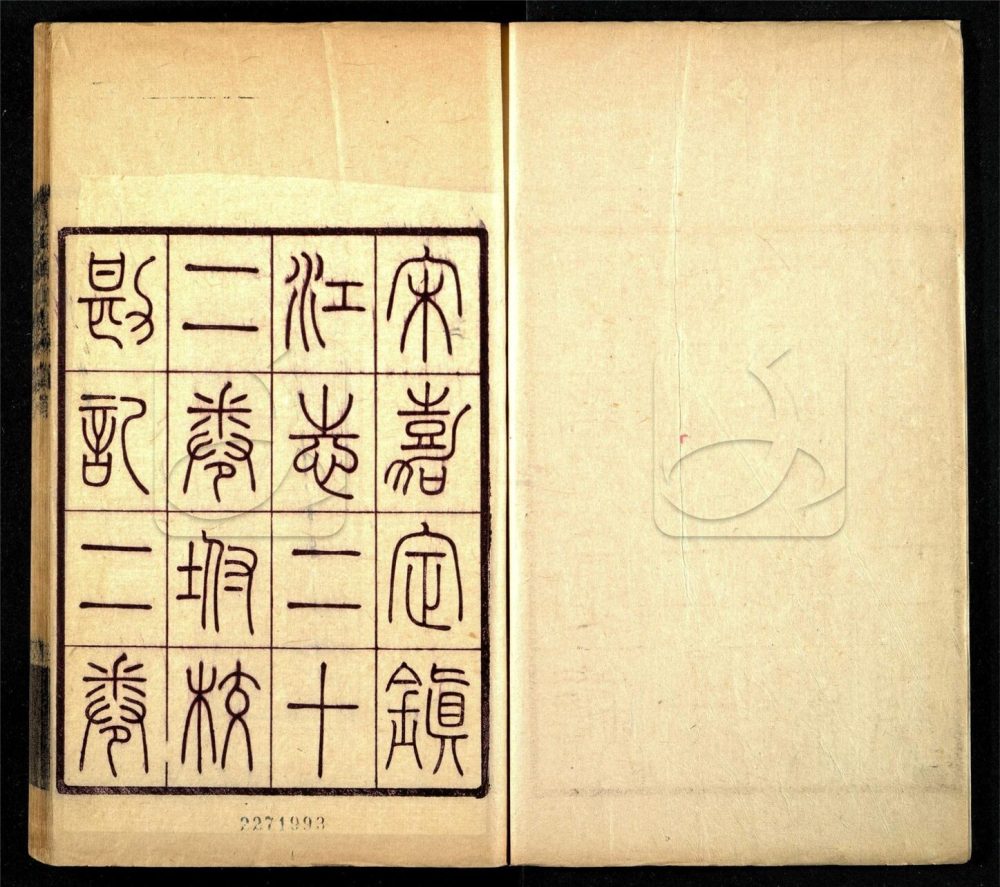 宋嘉定鎮
江志二十
二卷坿校
勘記二卷
2271993